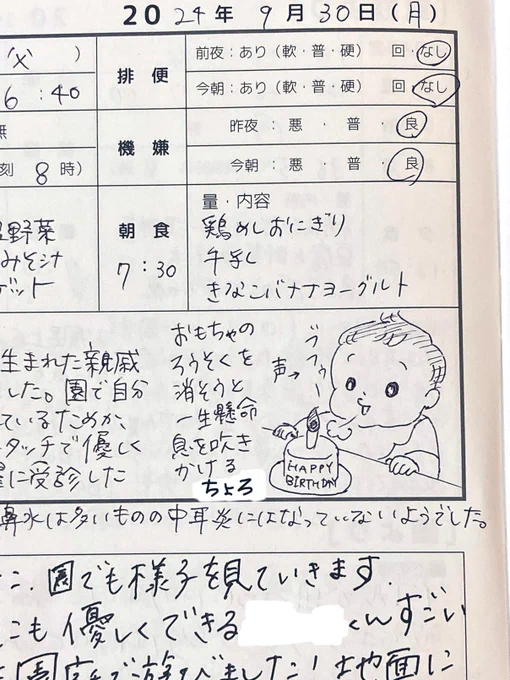 2024年 9月30日(月)
父 )
6:40
排便
前夜:あり(軟・普・硬) 回・なし
今朝:あり(軟・普・硬) 回・なし
無
刻 8時)
機嫌
昨夜:悪・普・良
今朝:悪・普・良
野菜
みそ汁
朝食
7:30
量・内容
鶏めしおにぎり
牛乳
きなこバナナヨーグルト
生まれた親戚
した。園で自分
ているためか、
タッチで優しく
に受診した
おもちゃの
ろうそくを
消そうと
一生懸命
息を吹き
かける
ちょろ
声→
HAPPY
BIRTHDAY
鼻水は多いものの中耳炎にはなっていないようでした。
園でも様子を見ていきます.
こも優しくできる くんすごい
園庭で遊びました! 地面に